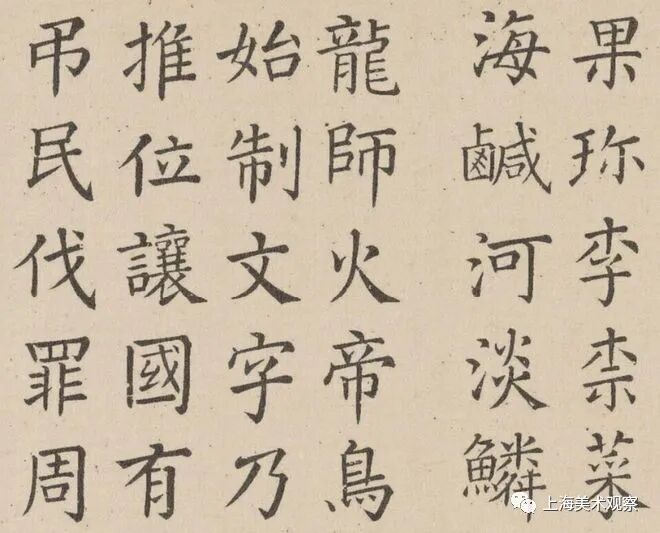 果珎李柰菜
海鹹河淡鱗
龍師火帝鳥
始制文字乃
推位讓國有
弔民伐罪周
上海美术观察